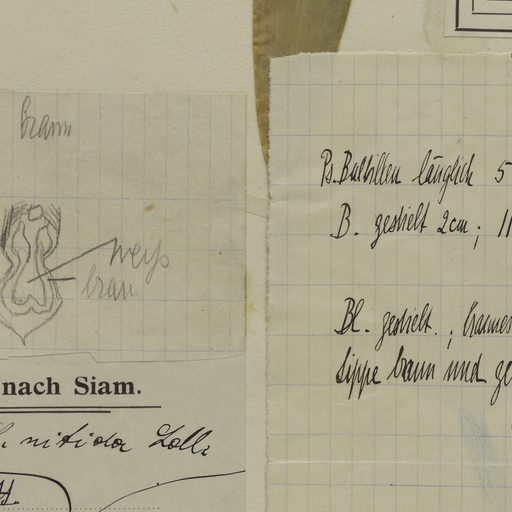 braun
weiß
braun
nach Siam.
nitida Zoll.
Ps. Bulbillen länglich 5
B. gestielt 2cm; 11
Bl. gestielt.;
Lippe braun und ge